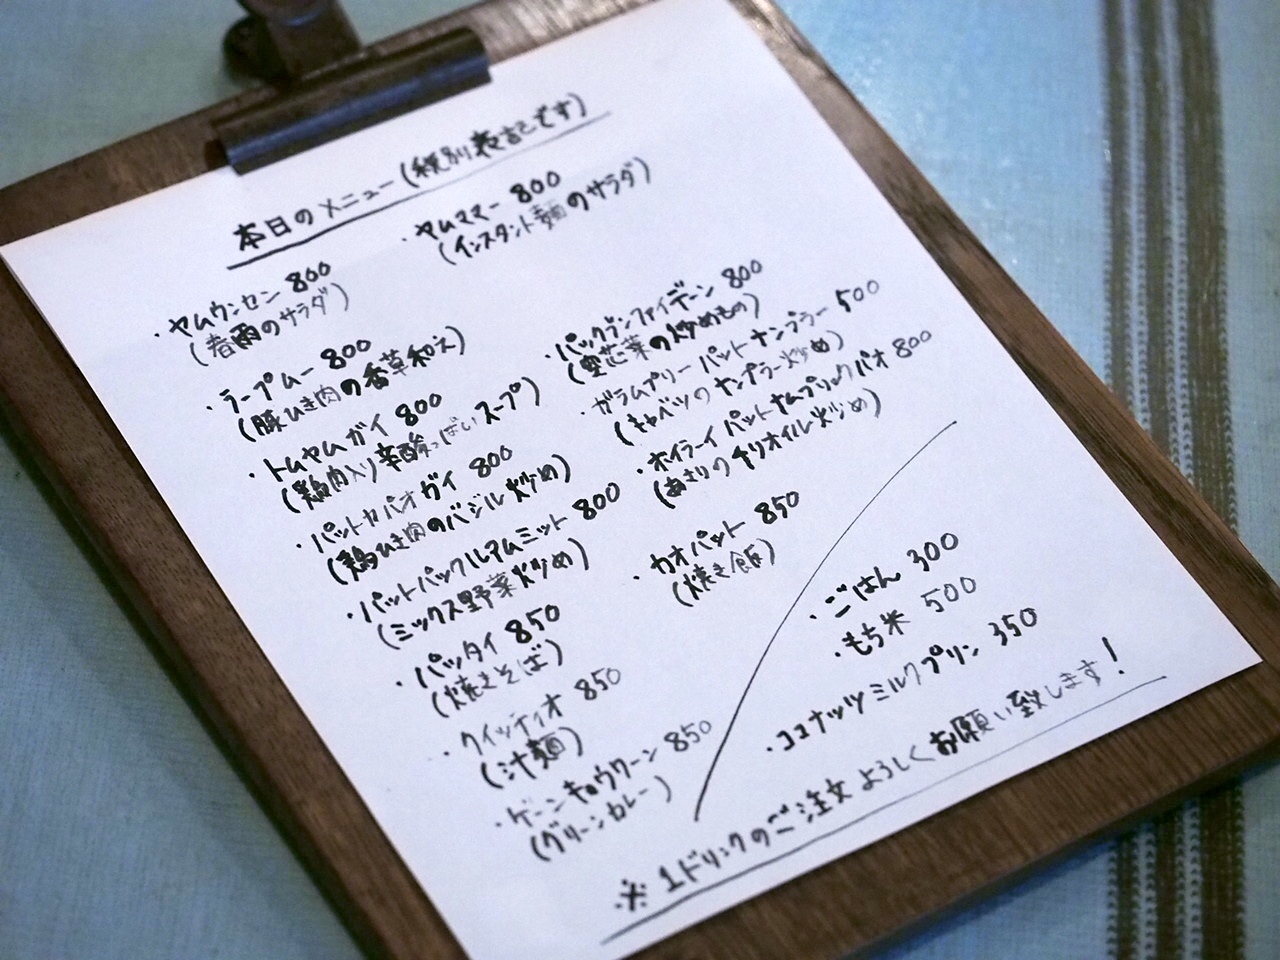 本日のメニュー(税別表記です)
・ヤムウンセン 800
(春雨のサラダ)
・ヤムママー 800
(インスタント麺のサラダ)
・ラープムー 800
(豚ひき肉の香草和え)
・トムヤムガイ 800
(鶏肉入り辛酸っぱいスープ)
・パットガパオガイ 800
(鶏ひき肉のバジル炒め)
・パットパックルアムミット 800
(ミックス野菜炒め)
・パッタイ 850
(焼きそば)
・クイッティオ 850
(汁麺)
・ゲーンキョウワーン 850
(グリーンカレー)
・パックブンファイデーン 800
(空芯菜の炒めもの)
・ガラムプリー パットナンプラー 500
(キャベツのナンプラー炒め)
・ホイラーイ パットナムプリックパオ 800
(あさりのチリオイル炒め)
・カオパット 850
(焼き飯)
・ごはん 300
・もち米 500
・ココナッツミルクプリン 350
※1ドリンクのご注文よろしくお願い致します!